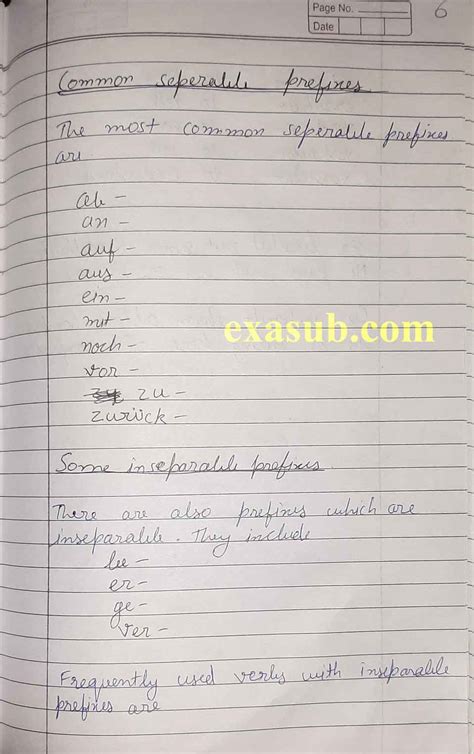 Page No.
6
Date
Common seperable prefixes
The most common seperable prefixes
are
ab -
an -
auf -
aus -
ein -
mit -
noch -
vor -
zu -
zurück -
exasub.com
Some inseparable prefixes
There are also prefixes which are
inseparable. They include
be -
er -
ge -
ver -
Frequently used verbs with inseparable
prefixes are